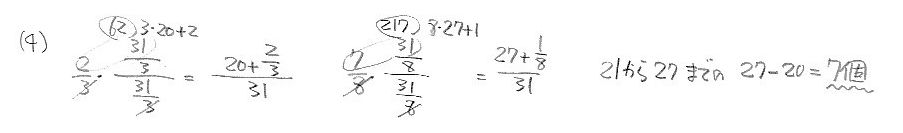 (4) \frac{2}{3} \cdot \frac{\frac{31}{3}}{\frac{31}{3}} = \frac{20+\frac{2}{3}}{31} (62) 3・20+2 \frac{7}{8} \cdot \frac{\frac{31}{8}}{\frac{31}{8}} = \frac{27+\frac{1}{8}}{31} (217) 8・27+1 21から27までの 27-20=7個